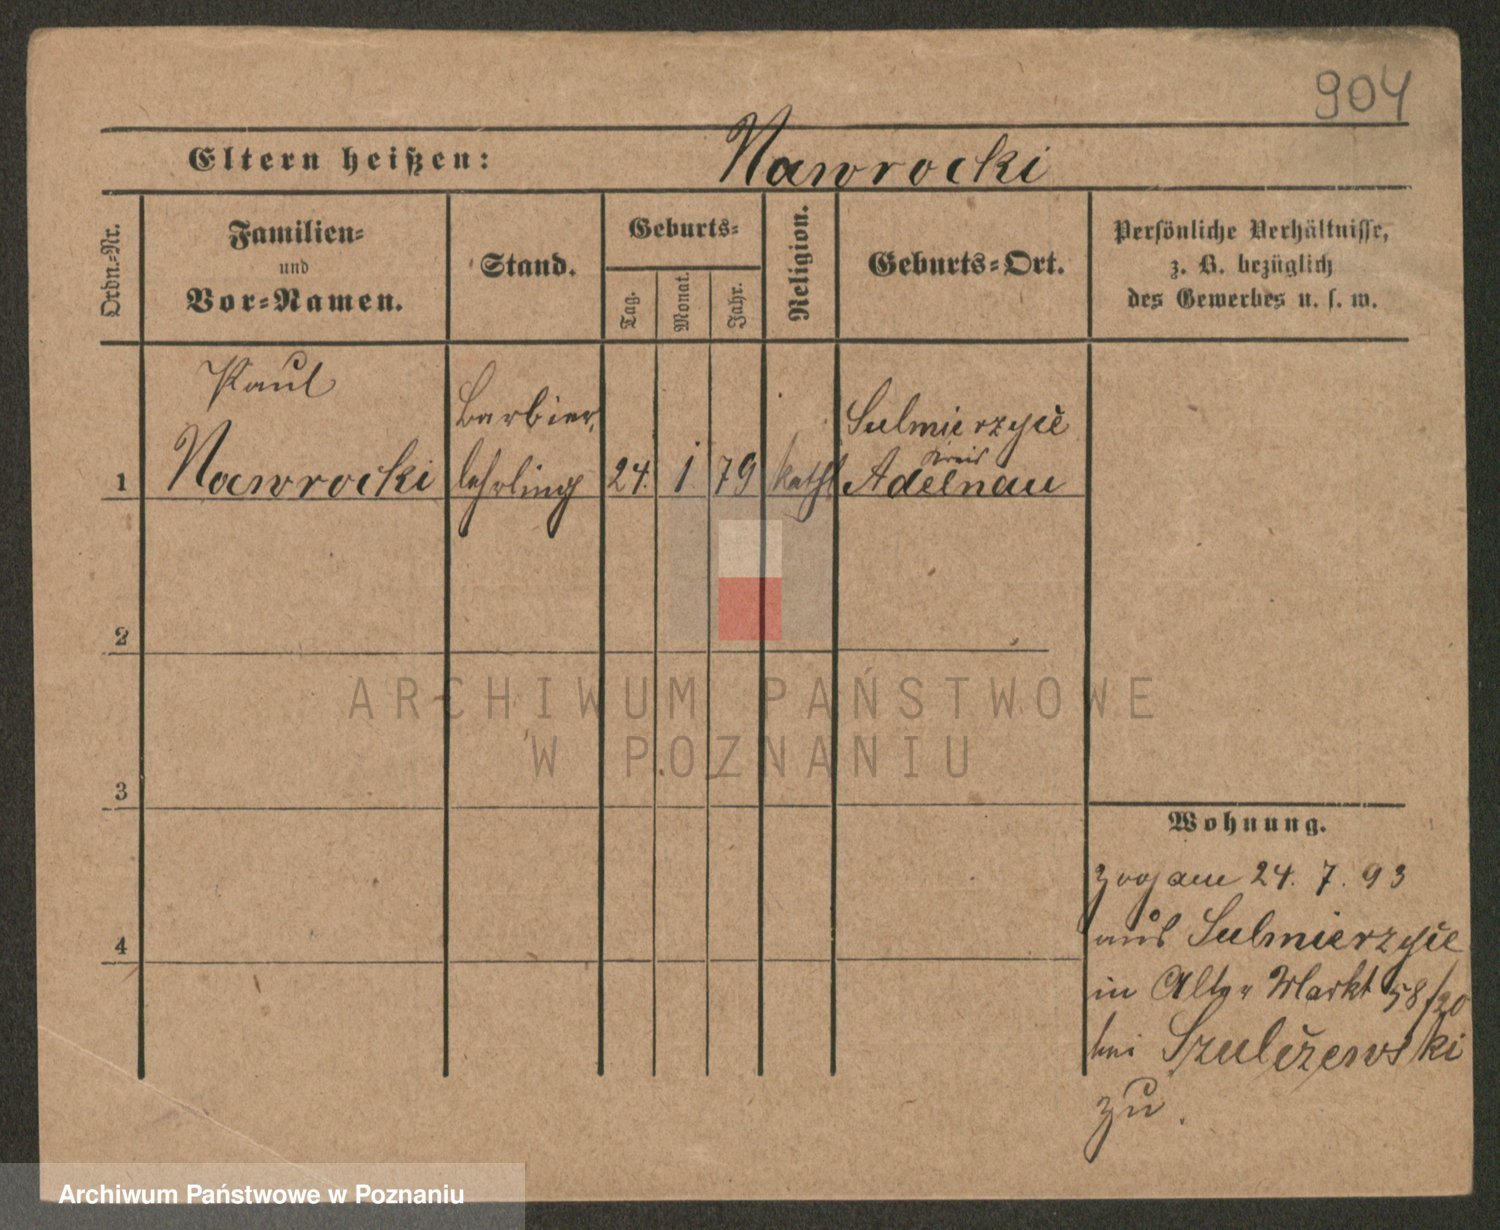 904
Eltern heißen: Nawrocki
Ordn.-Nr.
Familien-
und
Vor-Namen.
Stand.
Geburts-
Tag.
Monat.
Jahr.
Religion.
Geburts-Ort.
Persönliche Verhältnisse,
z. B. bezüglich
des Gewerbes u. s. w.
Paul
Barbier
Sulmierzyce
Kreis
1 Nawrocki lehrling 24. 1. 79 kathl Adelnau
2
ARCHIWUM PAŃSTWOWE
W POZNANIU
3
Wohnung.
zog am 24. 7. 93
4
aus Sulmierzyce
in Alter Markt 58/20
bei Szulczewski
zu.
Archiwum Państwowe w Poznaniu